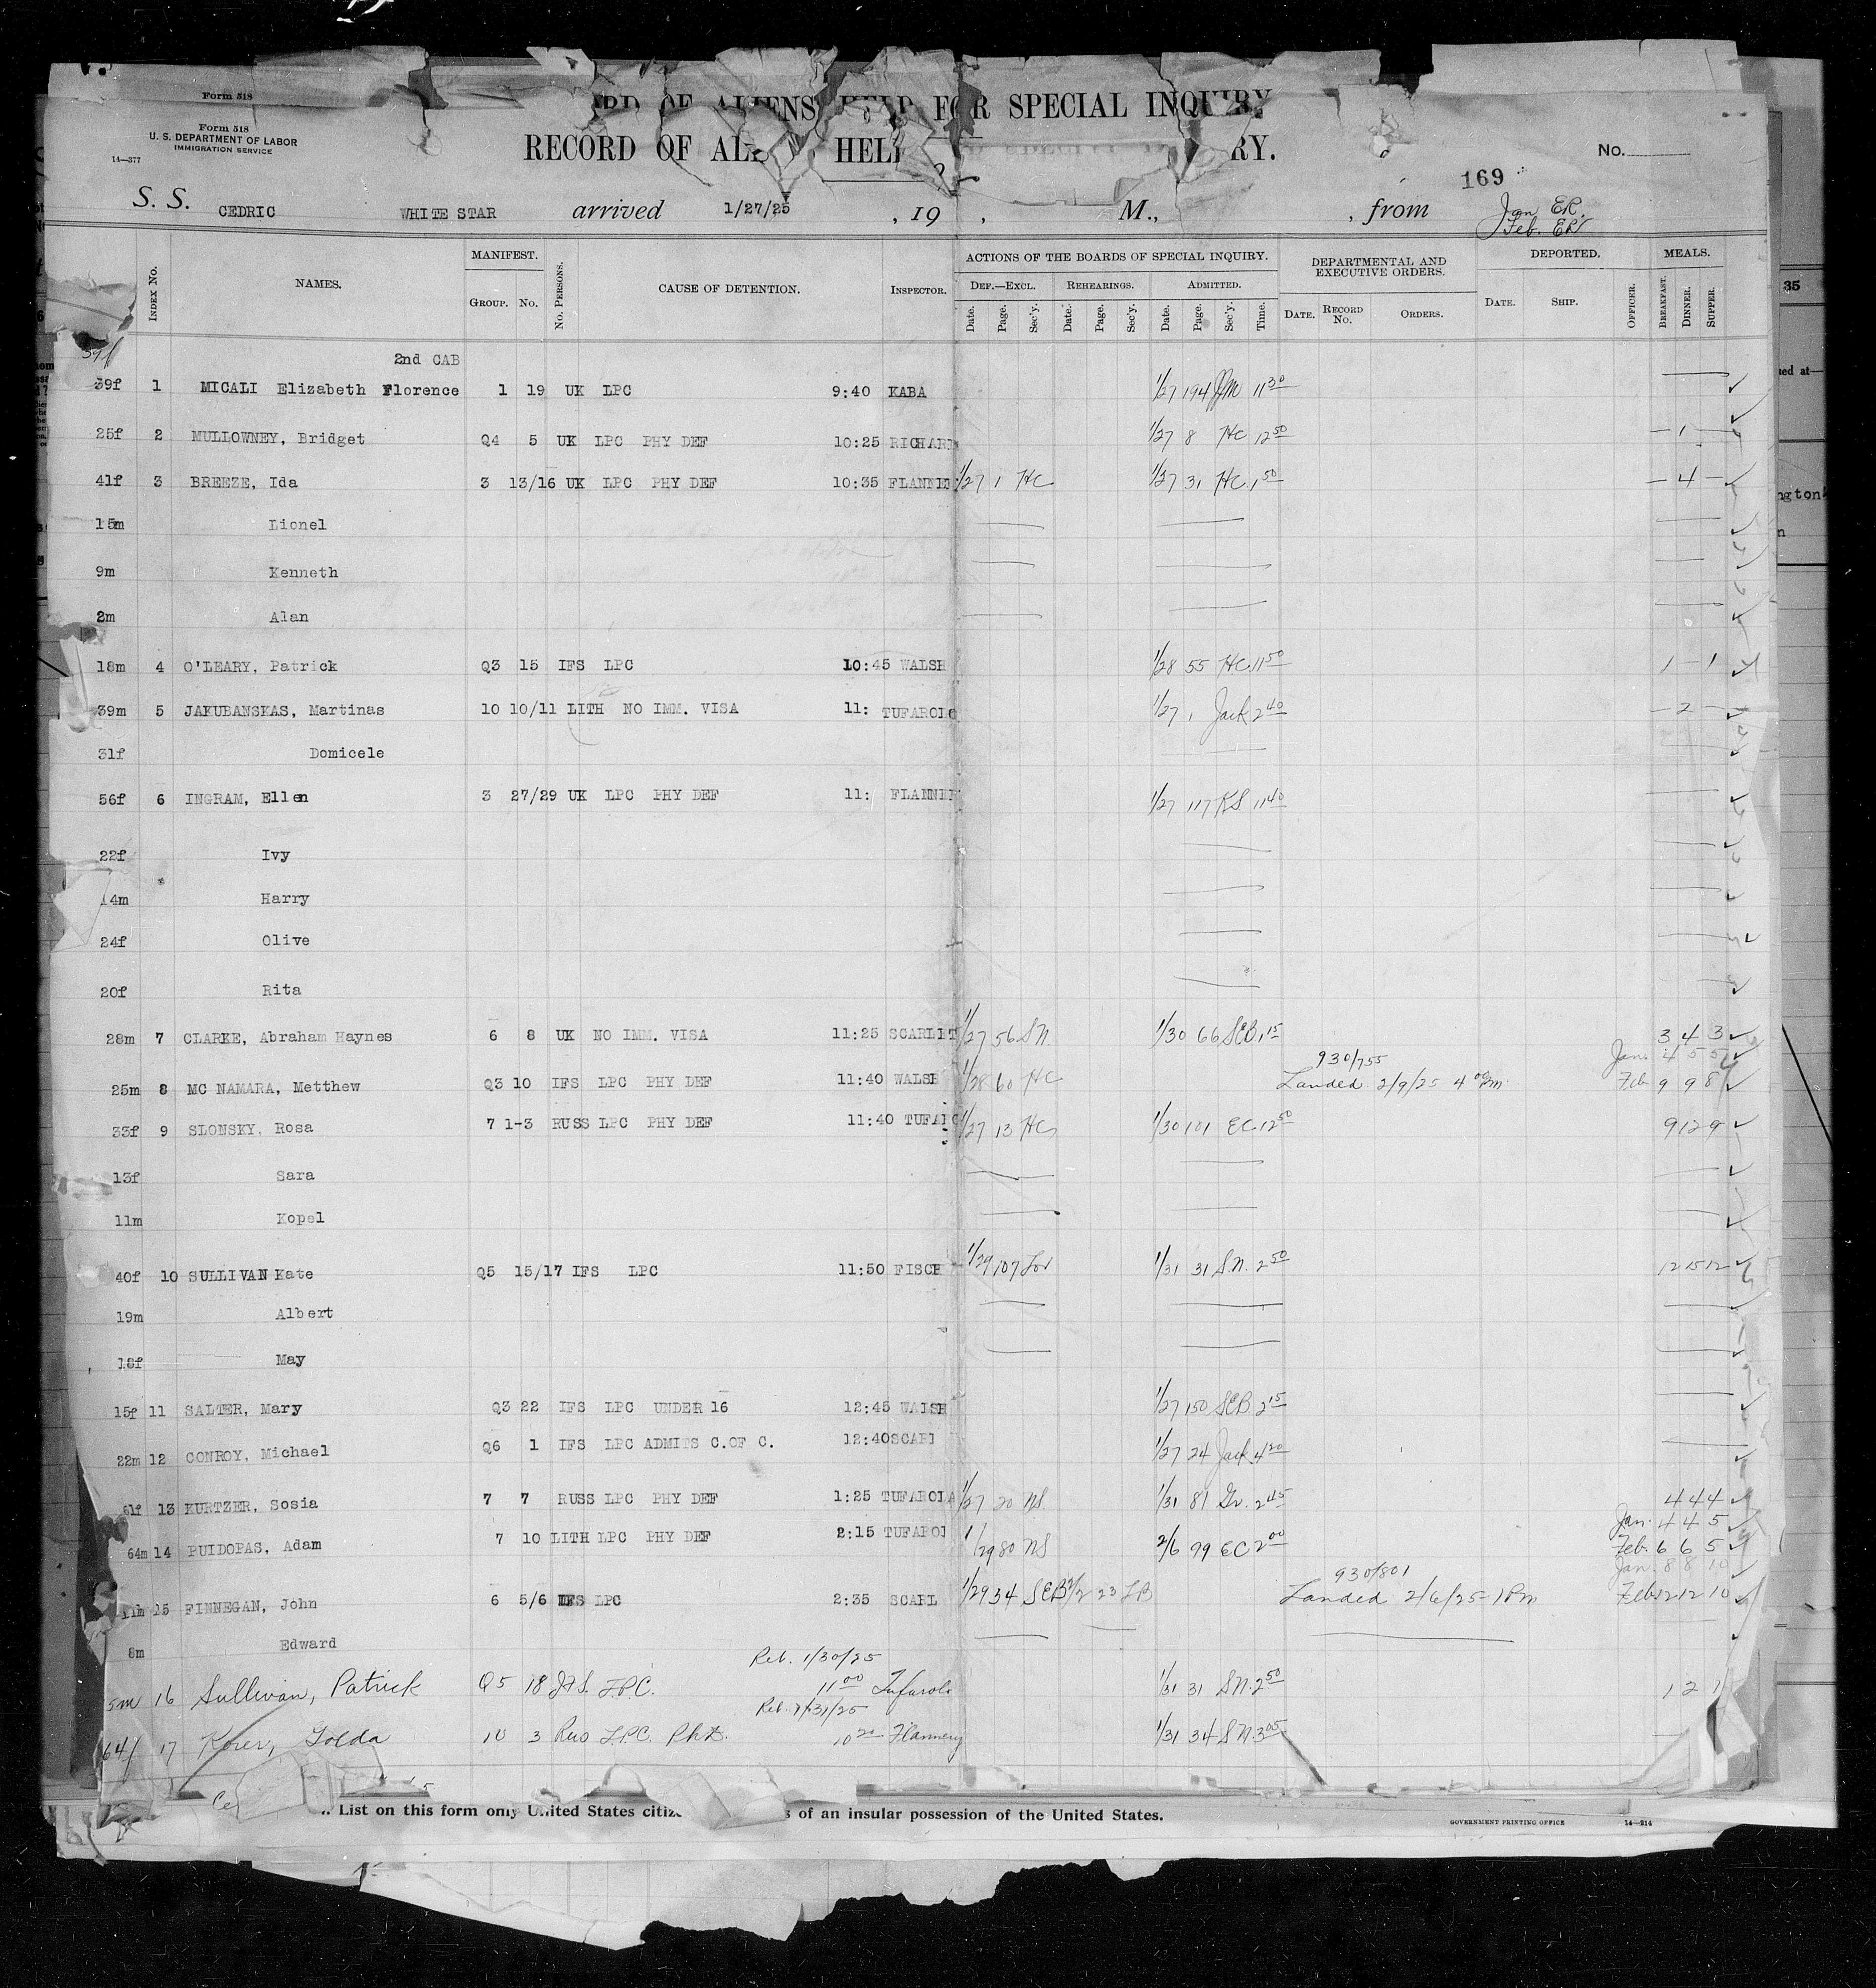 Form 518
RD OF ALIENS HELD FOR SPECIAL INQUIRY
Form 518
U. S. DEPARTMENT OF LABOR
IMMIGRATION SERVICE
14—377
RECORD OF AL HEL RY.
No.
169
S. S. CEDRIC WHITE STAR arrived 1/27/25 , 19 , M., , from Jan ER.
Feb. ER
INDEX No. NAMES. MANIFEST. GROUP. No. No. PERSONS. CAUSE OF DETENTION. INSPECTOR. ACTIONS OF THE BOARDS OF SPECIAL INQUIRY. DEF.—EXCL. Date. Page. Sec'y. REHEARINGS. Date. Page. Sec'y. ADMITTED. Date. Page. Sec'y. Time. DEPARTMENTAL AND EXECUTIVE ORDERS. DATE. RECORD No. ORDERS. DEPORTED. DATE. SHIP. OFFICER. MEALS. BREAKFAST. DINNER. SUPPER.
39f
2nd CAB
39f 1 MICALI Elizabeth Florence 1 19 UK LPC 9:40 KABA 1/27 194 11 30
25f 2 MULLOWNEY, Bridget Q4 5 UK LPC PHY DEF 10:25 RICHARD 1/27 8 HC 12 50 — 1 —
41f 3 BREEZE, Ida 3 13/16 UK LPC PHY DEF 10:35 FLANNE 1/27 1 HC 1/27 31 HC 1 50 — 4 —
15m Lionel
9m Kenneth
2m Alan
18m 4 O'LEARY, Patrick Q3 15 IFS LPC 10:45 WALSH 1/28 55 HC 11 50 1 — 1
39m 5 JAKUBANSKAS, Martinas 10 10/11 LITH NO IMM. VISA 11: TUFAROLO 1/27 1 Jack 2 40 — 2 —
31f Domicele
56f 6 INGRAM, Ellen 3 27/29 UK LPC PHY DEF 11: FLANNE 1/27 117 KS 11 40
22f Ivy
14m Harry
24f Olive
20f Rita
28m 7 CLARKE, Abraham Haynes 6 8 UK NO IMM. VISA 11:25 SCARLET 1/27 56 SN 1/30 66 SEB 1 15 3 4 3
930/755 Jan. 4 5 5
25m 8 MC NAMARA, Metthew Q3 10 IFS LPC PHY DEF 11:40 WALSH 1/28 60 HC Landed 2/9/25 4 00 Pm. Feb 9 9 8
33f 9 SLONSKY, Rosa 7 1-3 RUSS LPC PHY DEF 11:40 TUFARO 1/27 13 HC 1/30 101 EC 12 50 9 12 9
13f Sara
11m Kopel
40f 10 SULLIVAN Kate Q5 15/17 IFS LPC 11:50 FISCH 1/29 107 1/31 31 S.N. 2 50 12 15 12
19m Albert
18f May
15f 11 SALTER, Mary Q3 22 IFS LPC UNDER 16 12:45 WALSH 1/27 150 SEB 2 15
22m 12 CONROY, Michael Q6 1 IFS LPC ADMITS C.OF C. 12:40 SCARL 1/27 24 Jack 4 20
61f 13 KURTZER, Sosia 7 7 RUSS LPC PHY DEF 1:25 TUFAROLA 1/27 20 NS 1/31 81 Gr. 2 45 4 4 4
Jan. 4 4 5
64m 14 PUIDOPAS, Adam 7 10 LITH LPC PHY DEF 2:15 TUFARO 1/29 80 NS 2/6 99 EC 2 00 Feb. 6 6 5
930/801 Jan. 8 8 10
11m 15 FINNEGAN, John 6 5/6 IFS LPC 2:35 SCARL 1/29 34 SEB 2/2 23 LB Landed 2/6/25 1 Pm Feb 12 12 10
8m Edward
Reb. 1/30/25
5m 16 Sullivan, Patrick Q5 18 IFS. LPC. 11 00 Tufarolo 1/31 31 S.N. 2 50 1 2 1
Reb. 1/31/25
64f 17 Korer, Golda 10 3 Rus LPC. PhD. 10 20 Flannery 1/31 34 SN 3 05
Ce
List on this form only United States citiz s of an insular possession of the United States.
GOVERNMENT PRINTING OFFICE 14—214
35
ued at—
ngton
n